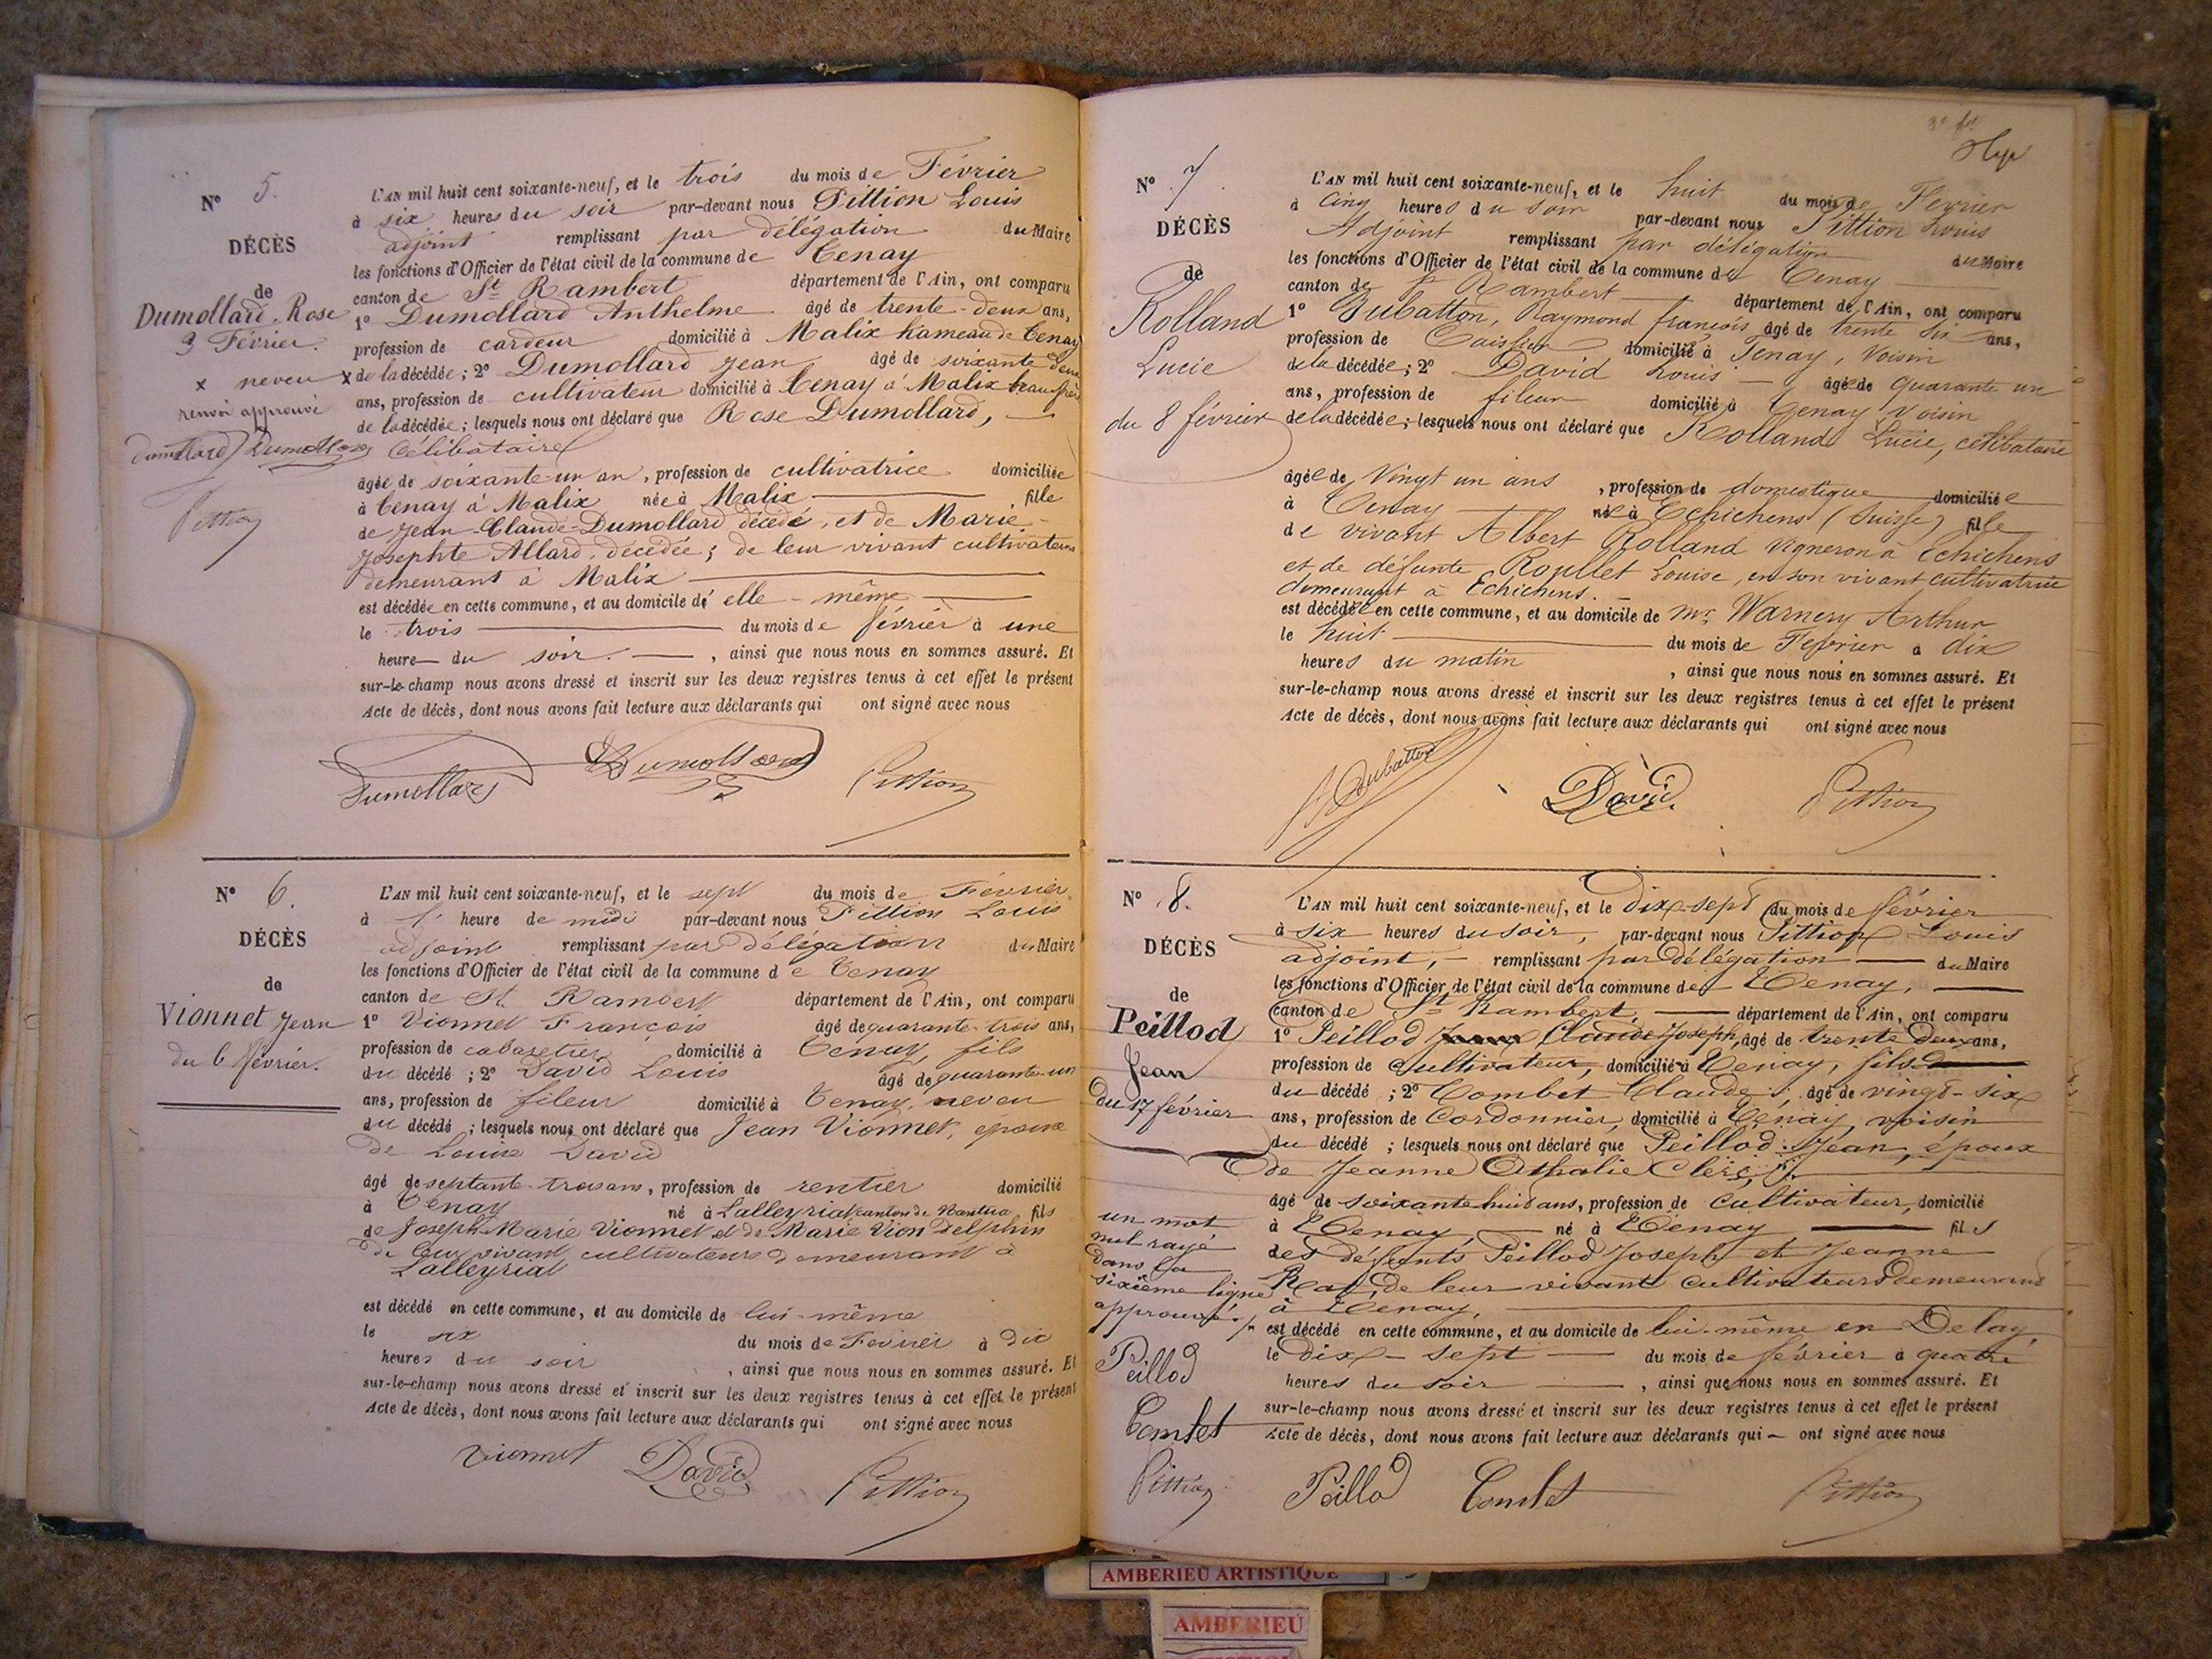 N° 5.
DÉCÈS
de
Dumollard, Rose
3 Février.
x neveu
renvoi approuvé
Dumollard Dumollard
Pittion
L'AN mil huit cent soixante-neuf, et le trois du mois de Février
à six heures du soir par-devant nous Pittion Louis
adjoint remplissant par délégation du Maire
les fonctions d'Officier de l'état civil de la commune de Tenay
canton de St Rambert département de l'Ain, ont comparu
1° Dumollard Anthelme âgé de trente-deux ans,
profession de cardeur domicilié à Malix hameau de Tenay
x de la décédée; 2° Dumollard Jean âgé de soixante deux
ans, profession de cultivateur domicilié à Tenay à Malix beau frère
de la décédée; lesquels nous ont déclaré que Rose Dumollard,
Célibataire
âgée de soixante-un an, profession de cultivatrice domiciliée
à Tenay à Malix née à Malix fille
de Jean-Claude Dumollard décédé, et de Marie-
Josephte Allard, décédée; de leur vivant cultivateurs
demeurant à Malix
est décédée en cette commune, et au domicile d' elle-même
le trois du mois de février à une
heure du soir. , ainsi que nous nous en sommes assuré. Et
sur-le-champ nous avons dressé et inscrit sur les deux registres tenus à cet effet le présent
Acte de décès, dont nous avons fait lecture aux déclarants qui ont signé avec nous
Dumollard Dumollard Pittion
N° 6.
DÉCÈS
de
Vionnet Jean
du 6 février.
L'AN mil huit cent soixante-neuf, et le sept du mois de Février
à 1 heure de midi par-devant nous Pittion Louis
adjoint remplissant par délégation du Maire
les fonctions d'Officier de l'état civil de la commune de Tenay
canton de St Rambert département de l'Ain, ont comparu
1° Vionnet François âgé de quarante-trois ans,
profession de cabaretier domicilié à Tenay, fils
du décédé; 2° David Louis âgé de quarante-un
ans, profession de fileur domicilié à Tenay, neveu
du décédé; lesquels nous ont déclaré que Jean Vionnet, époux
de Louise David
âgé de septante-trois ans, profession de rentier domicilié
à Tenay né à Lalleyriat canton de Nantua, fils
de Joseph-Marie Vionnet et de Marie Vion Delphin
de leur vivant cultivateurs demeurant à
Lalleyriat
est décédé en cette commune, et au domicile de lui-même
le six du mois de Février à dix
heures du soir , ainsi que nous nous en sommes assuré. Et
sur-le-champ nous avons dressé et inscrit sur les deux registres tenus à cet effet le présent
Acte de décès, dont nous avons fait lecture aux déclarants qui ont signé avec nous
Vionnet David Pittion
N° 7.
DÉCÈS
de
Rolland
Lucie
du 8 février
L'AN mil huit cent soixante-neuf, et le huit du mois de Fevrier
à Cinq heures du soir par-devant nous Pittion Louis
Adjoint remplissant par délégation du Maire
les fonctions d'Officier de l'état civil de la commune de Tenay
canton de St Rambert département de l'Ain, ont comparu
1° Dubatton, Raymond françois âgé de trente six ans,
profession de Caissier domicilié à Tenay, Voisin
de la décédée; 2° David Louis âgé de quarante un
ans, profession de fileur domicilié à Tenay Voisin
de la décédée; lesquels nous ont déclaré que Rolland Lucie, célibataire
âgée de Vingt un ans , profession de domestique domiciliée
à Tenay née à Echichens (Suisse) fille
de vivant Albert Rolland Vigneron à Echichens
et de défunte Roullet Louise, en son vivant cultivatrice
demeurant à Echichens.
est décédée en cette commune, et au domicile de Mr Warnery Arthur
le huit du mois de Fevrier à dix
heures du matin , ainsi que nous nous en sommes assuré. Et
sur-le-champ nous avons dressé et inscrit sur les deux registres tenus à cet effet le présent
Acte de décès, dont nous avons fait lecture aux déclarants qui ont signé avec nous
Dubatton David Pittion
N° 8.
DÉCÈS
de
Peillod
Jean
du 17 février
un mot
nul rayé
dans la
sixième ligne
approuvé.
Peillod
Combet
Pittion
L'AN mil huit cent soixante-neuf, et le Dix-sept du mois de février
à six heures du soir, par-devant nous Pittion Louis
adjoint, remplissant par Délégation du Maire
les fonctions d'Officier de l'état civil de la commune de Tenay,
canton de St Rambert, département de l'Ain, ont comparu
1° Peillod Claude Joseph, âgé de trente Deux ans,
profession de Cultivateur, domicilié à Tenay, fils
du décédé; 2° Combet Claude, âgé de vingt-six
ans, profession de Cordonnier, domicilié à Tenay, voisin
du décédé; lesquels nous ont déclaré que Peillod Jean, époux
de Jeanne Athalie Clerc,
âgé de soixante huit ans, profession de Cultivateur, domicilié
à Tenay, né à Tenay fils
des défunts Peillod Joseph et Jeanne
de leur vivant cultivateurs demeurant
à Tenay,
est décédé en cette commune, et au domicile de lui-même en Delay,
le Dix-sept du mois de février à quatre
heures du soir , ainsi que nous nous en sommes assuré. Et
sur-le-champ nous avons dressé et inscrit sur les deux registres tenus à cet effet le présent
Acte de décès, dont nous avons fait lecture aux déclarants qui ont signé avec nous
Peillod Combet Pittion
AMBERIEU ARTISTIQUE
AMBERIEU